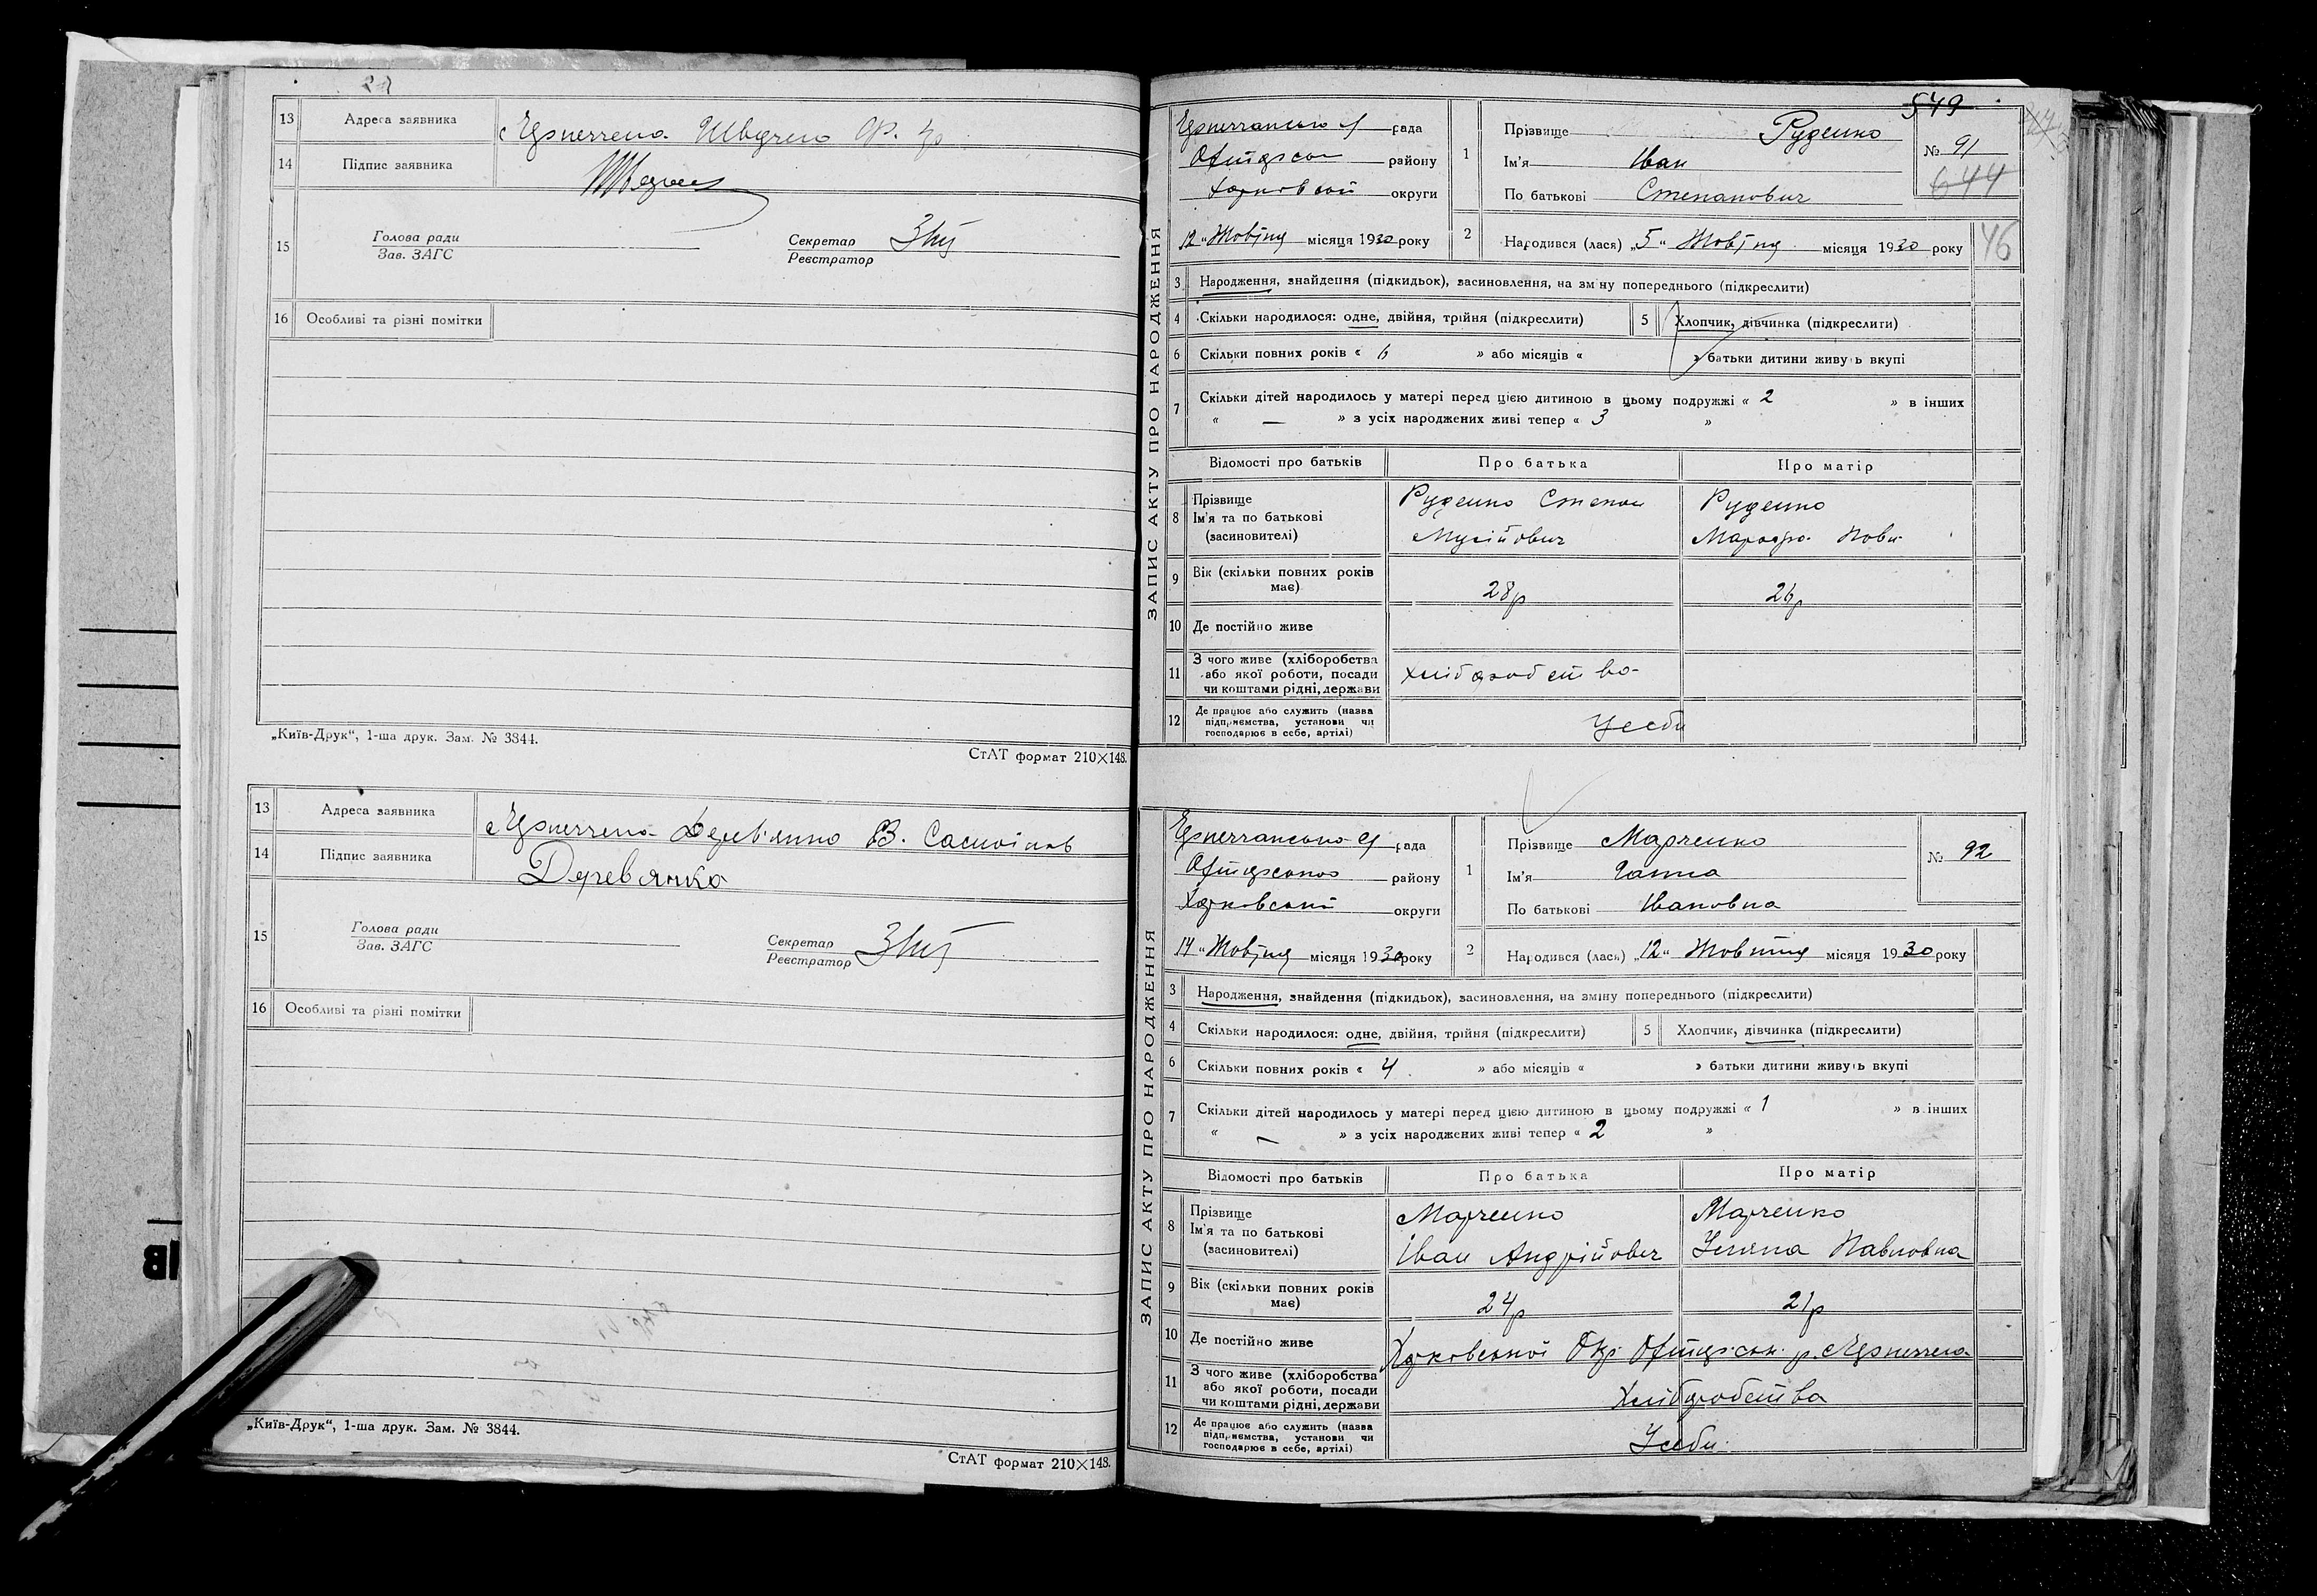 13 Адреса заявника
14 Підпис заявника
15 Голова ради
Зав. ЗАГС
Секретар
Реєстратор
16 Особливі та різні помітки
„Київ-Друк“, 1-ша друк. Зам. № 3844.
СтАТ формат 210×148.
13 Адреса заявника Дерев'янко В.
14 Підпис заявника Деревянко
15 Голова ради
Зав. ЗАГС
Секретар
Реєстратор
16 Особливі та різні помітки
„Київ-Друк“, 1-ша друк. Зам. № 3844.
СтАТ формат 210×148.
549
ЗАПИС АКТУ ПРО НАРОДЖЕННЯ
рада
району
округи
12 “ місяця 1930 року
1 Прізвище Руденко
Ім'я Іван
По батькові Степанович
№ 91
644
46
2 Народився (лася) „5“ місяця 1930 року
3 Народження, знайдення (підкидьок), засиновлення, на зміну попереднього (підкреслити)
4 Скільки народилося: одне, двійня, трійня (підкреслити) 5 Хлопчик, дівчинка (підкреслити)
6 Скільки повних років « 6 » або місяців « » батьки дитини живуть вкупі
7 Скільки дітей народилось у матері перед цією дитиною в цьому подружжі « 2 » в інших
« — » з усіх народжених живі тепер « 3 »
Відомості про батьків Про батька Про матір
8 Прізвище
Ім'я та по батькові
(засиновителі)
Руденко Степан
Мусійович
Руденко
9 Вік (скільки повних років
має) 28р 26р
10 Де постійно живе
11 З чого живе (хліборобства
або якої роботи, посади
чи коштами рідні, держави
хліборобство
12 Де працює або служить (назва
підприємства, установи чи
господарює в себе, артілі)
Усеби
ЗАПИС АКТУ ПРО НАРОДЖЕННЯ
рада
району
Харківської округи
14 “ місяця 1930 року
1 Прізвище Марченко
Ім'я Ганна
По батькові Івановна
№ 92
2 Народився (лась) „12“ Жовтня місяця 1930 року
3 Народження, знайдення (підкидьок), засиновлення, на зміну попереднього (підкреслити)
4 Скільки народилося: одне, двійня, трійня (підкреслити) 5 Хлопчик, дівчинка (підкреслити)
6 Скільки повних років « 4 » або місяців « » батьки дитини живуть вкупі
7 Скільки дітей народилось у матері перед цією дитиною в цьому подружжі « 1 » в інших
« — » з усіх народжених живі тепер « 2 »
Відомості про батьків Про батька Про матір
8 Прізвище
Ім'я та по батькові
(засиновителі)
Марченко
Іван Андрійович
Марченко
Уляна Павловна
9 Вік (скільки повних років
має) 24р 21р
10 Де постійно живе Харківської Окр.
11 З чого живе (хліборобства
або якої роботи, посади
чи коштами рідні, держави
Хліборобства
12 Де працює або служить (назва
підприємства, установи чи
господарює в себе, артілі)
Усеби